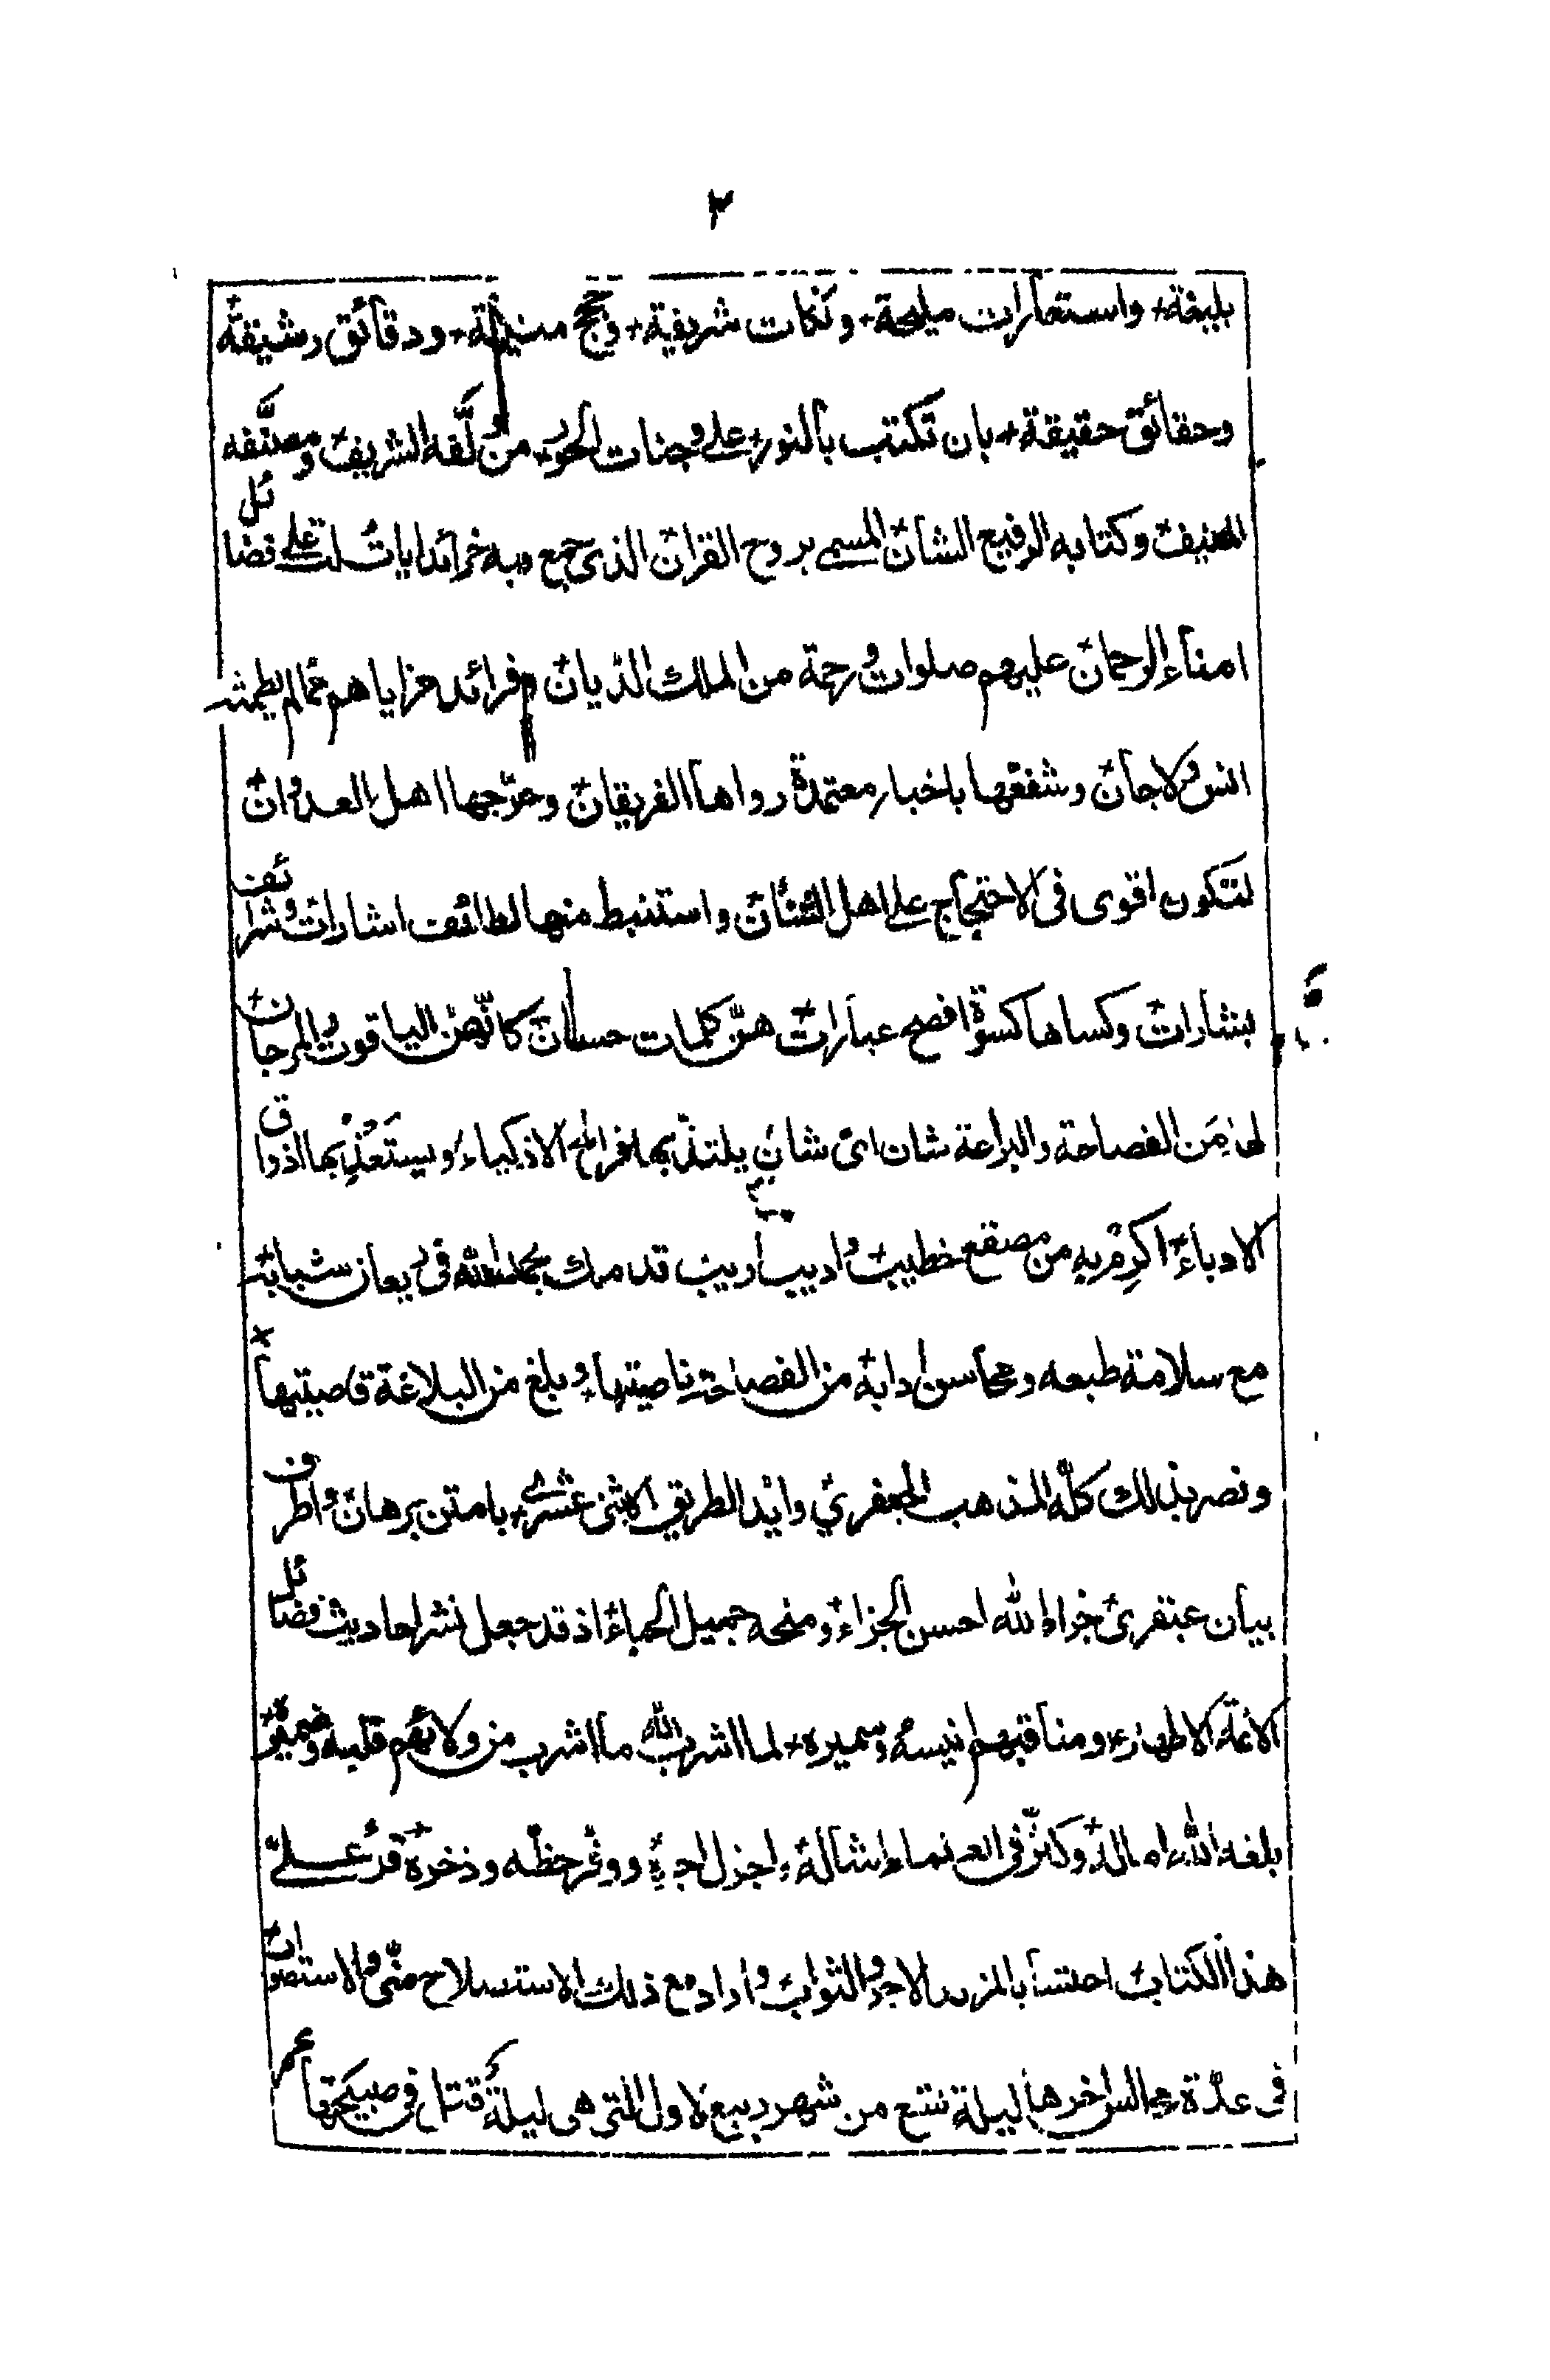 ٢
بليغة+ واستعارات مليحة+ ونكات شريفية+ وحجج منيعة+ ودقائق رشيقة
وحقائق حقيقة+ بان تكتب بالنور+ على وجنات الحور+ من مؤلّفه الشريف ومصنّفه
المنيف وكتابه الرفيع الشان المسمى بروح القران الذى جمع فيه خرائد ايات دلت على فضائل
امناء الرحمان عليهم صلوات ورحمة من الملك الدّيان وفرائد مزاياهم ممّا لم يطمثه
انس ولا جان وشفعها باخبار معتمدة رواها الفريقان وخرّجها اهل العدوان
لتكون اقوى فى الاحتجاج على اهل الشنان واستنبط منها لطائف اشارات وشرائف
بشارات وكساها كسوة افصح عبارات هنّ كلمات حسان كانّهن الياقوت والمرجان
لها من الفصاحة والبراعة شان اىّ شان يلتذّ بها قرائح الاذكياء ويستعذب بها اذواق
الادباء اكرم به من مصقع خطيب واديب اريب قد ملك بحمد الله فى ريعان شبابه
مع سلامة طبعه ومحاسن ادابه من الفصاحة ناصيتها وبلغ من البلاغة قاصيتها
ونصر بذلك كلّه المذهب الجعفرى وايّد الطريق الاثنى عشرى+ بامتن برهان واطرف
بيان عبقرى جزاه الله احسن الجزاء ومنحه جميل الحباء اذ قد جعل نشر احاديث فضائل
الائمة الاطهار+ ومناقبهم انيسه وسميره+ لما اشرب الله ما اشرب من ولائهم قلبه وضميره
بلغه الله اماله وكثّر فى العلماء امثاله واجزل اجره ووفّر حظّه وذخره قرء علىّ
هذا الكتاب احتسابا لمزيد الاجر والثواب واراد مع ذلك الاستسلاح منّى والاستصواب
فى عدّة مجالس اخرها ليلة تسع من شهر ربيع الاول التى هى ليلة قتل فى صبيحتها عمر